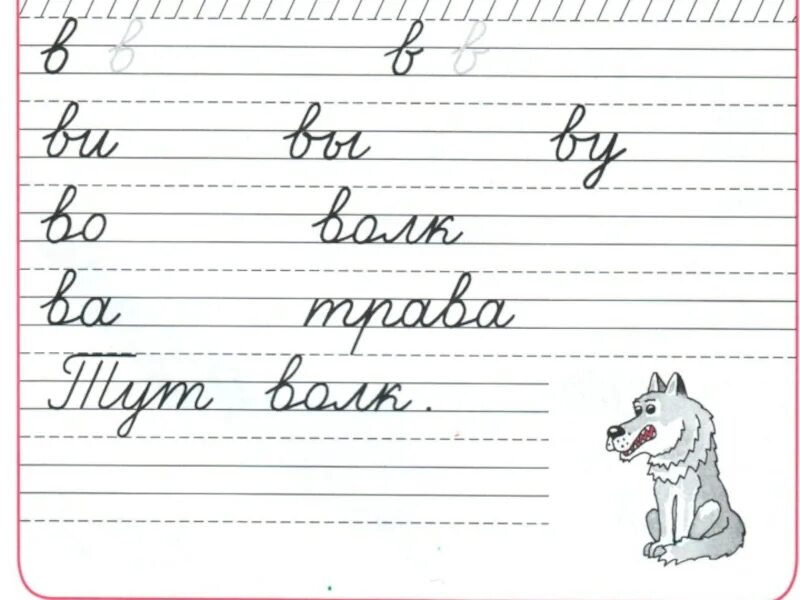 в в в в
ви вы ву
во волк
ва трава
Тут волк.